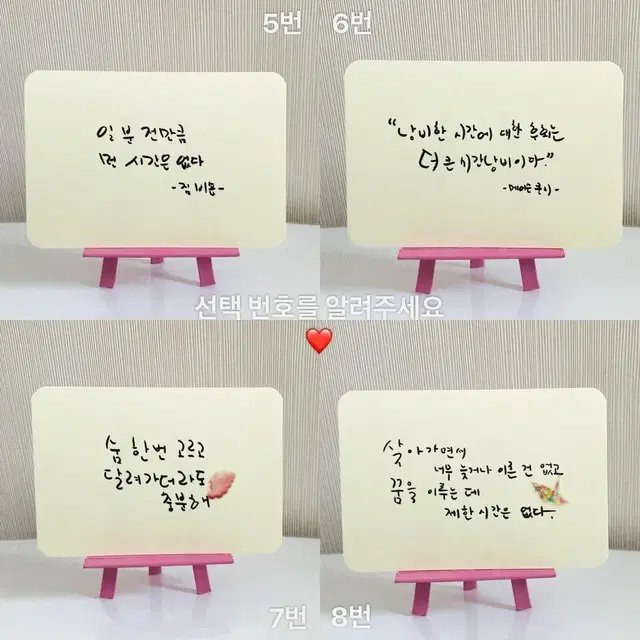 5번
6번
일 분 전만큼
먼 시간은 없다
-짐 비숍-
"낭비한 시간에 대한 후회는
더 큰 시간낭비이다."
-메이슨 쿨리-
선택 번호를 알려주세요
숨 한번 고르고
달려가더라도
충분해
살아가면서
너무 늦거나 이른 건 없고
꿈을 이루는 데
제한 시간은 없다.
7번
8번